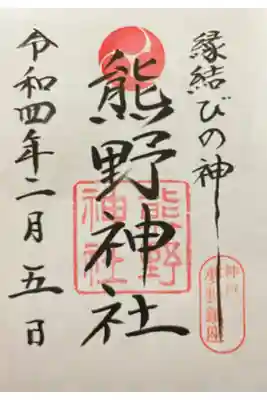 縁結びの神
神戸
熊野神社
熊野
神社
令和四年二月五日